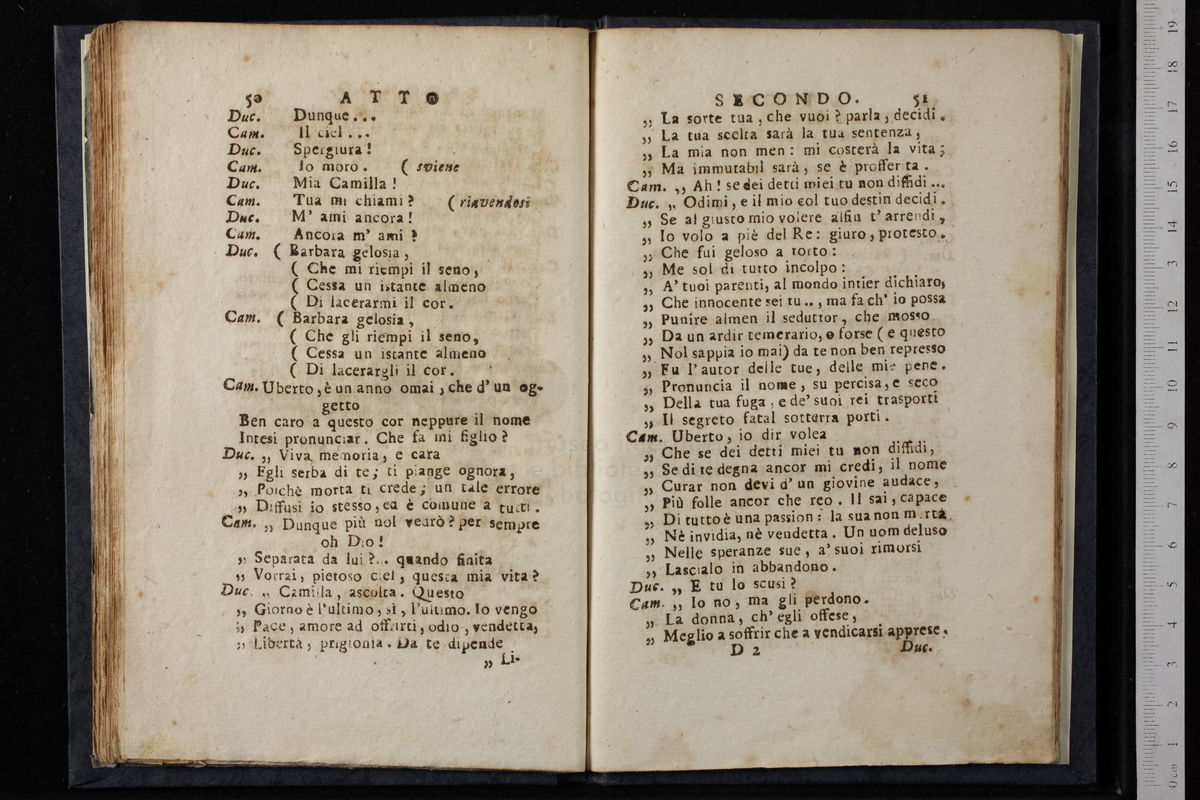 50 ATTO
Duc. Dunque...
Cam. Il ciel...
Duc. Spergiura!
Cam. Io moro. ( sviene
Duc. Mia Camilla!
Cam. Tua mi chiami? ( rinvendosi
Duc. M' ami ancora!
Cam. Ancora m' ami?
Duc. ( Barbara gelosia,
( Che mi riempi il seno,
( Cessa un istante almeno
( Di lacerarmi il cor.
Cam. ( Barbara gelosia,
( Che gli riempi il seno,
( Cessa un istante almeno
( Di lacerargli il cor.
Cam. Uberto, è un anno omai, che d' un og-
getto
Ben caro a questo cor neppure il nome
Intesi pronunciar. Che fa mi figlio?
Duc. „ Viva memoria, e cara
„ Egli serba di te; ti piange ognora,
„ Poichè morta ti crede; un tale errore
„ Diffusi io stesso, ed è comune a tutti.
Cam. „ Dunque più nol vedrò? per sempre
oh Dio!
„ Separata da lui?... quando finita
„ Vorrai, pietoso ciel, questa mia vita?
Duc. „ Camilla, ascolta. Questo
„ Giorno è l'ultimo, sì, l'ultimo. Io vengo
„ Pace, amore ad offrirti, odio, vendetta,
„ Libertà, prigionia. Da te dipende
„ Li-
SECONDO. 51
„ La sorte tua, che vuoi? parla, decidi.
„ La tua scelta sarà la tua sentenza,
„ La mia non men: mi costerà la vita;
„ Ma immutabil sarà, se è profferita.
Cam. „ Ah! se dei detti miei tu non diffidi...
Duc. „ Odimi, e il mio col tuo destin decidi.
„ Se al giusto mio volere alfin t' arrendi,
„ Io volo a piè del Re: giuro, protesto.
„ Che fui geloso a torto:
„ Me sol di tutto incolpo:
„ A' tuoi parenti, al mondo intier dichiaro,
„ Che innocente sei tu.., ma fa ch' io possa
„ Punire almen il seduttor, che mosso
„ Da un ardir temerario, o forse ( e questo
„ Nol sappia io mai) da te non ben represso
„ Fu l'autor delle tue, delle mie pene.
„ Pronuncia il nome, su percisa, e seco
„ Della tua fuga, e de' suoi rei trasporti
„ Il segreto fatal sotterra porti.
Cam. Uberto, io dir volea
„ Che se dei detti miei tu non diffidi,
„ Se di te degna ancor mi credi, il nome
„ Curar non devi d' un giovine audace,
„ Più folle ancor che reo. Il sai, capace
„ Di tutto è una passion: la sua non merta
„ Nè invidia, nè vendetta. Un uom deluso
„ Nelle speranze sue, a' suoi rimorsi
„ Lascialo in abbandono.
Duc. „ E tu lo scusi?
Cam. „ Io no, ma gli perdono.
„ La donna, ch' egli offese,
„ Meglio a soffrir che a vendicarsi apprese.
D 2 Duc.
0 cm 1 2 3 4 5 6 7 8 9 10 11 12 3 14 15 16 17 18 19